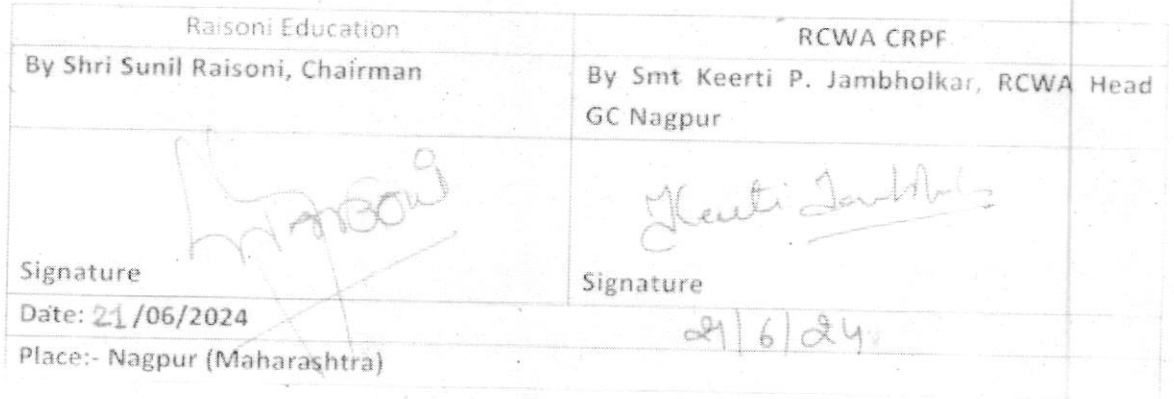 Raisoni Education
RCWA CRPF
By Shri Sunil Raisoni, Chairman
By Smt Keerti P. Jambholkar, RCWA Head
GC Nagpur
Keerti
Signature
Signature
Date: 21/06/2024
21/6/24
Place:- Nagpur (Maharashtra)